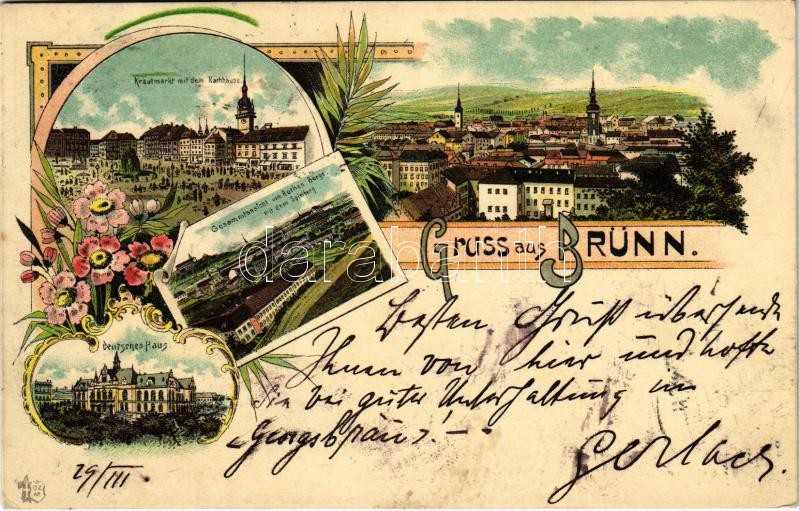 Krautmarkt mit dem Rathhause.
Gesammtansicht vom Rothen Berge
mit dem Spielberg
Deutsches Haus.
Gruss aus BRÜNN.
darabanth
Besten Gruß übersende
Ihnen von hier und hoffe
Sie bei guter Unterhaltung im
"Georgsbräu"! -
Gerlach
29/III